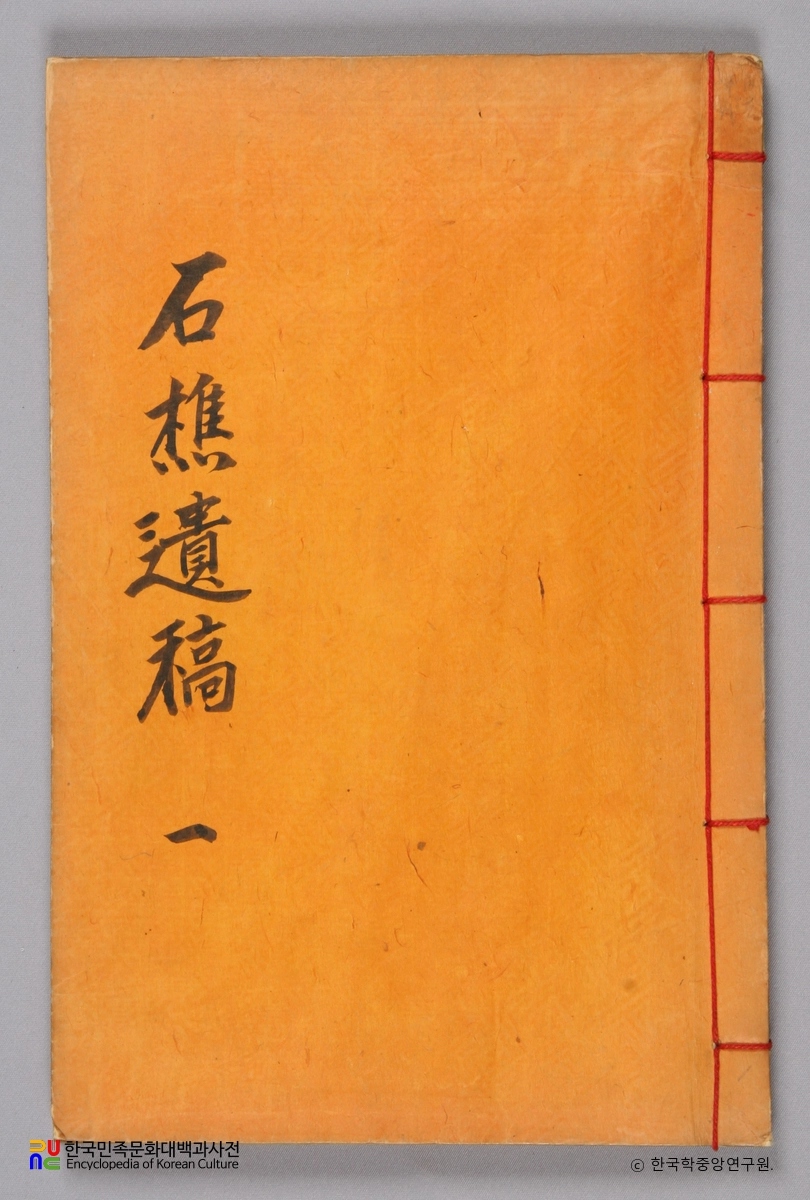 石樵遺稿 一
한국민족문화대백과사전
Encyclopedia of Korean Culture
ⓒ 한국학중앙연구원.